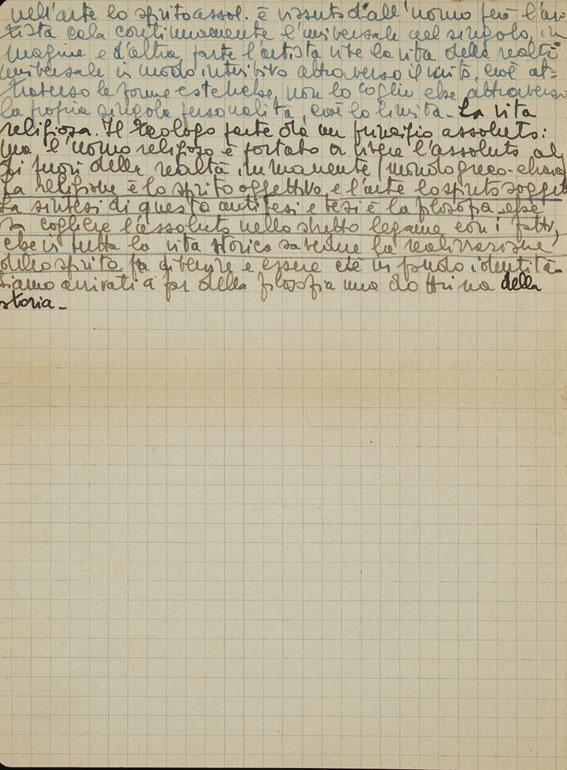 nell'arte lo spirito assol. è vissuto d'all'uomo però l'ar
tista cala continuamente l'universale nel singolo, im
magine e d'altra parte l'artista vive la vita della realtà
universale in modo intuitivo attraverso il mito, cioè at-
traverso le forme estetiche, non lo coglie che attraverso
la propria singola personalità, cioè lo limita. La vita
religiosa. Il teologo parte da un principio assoluto:
ma l'uomo religioso è portato a vivere l'assoluto al
di fuori della realtà immanente (mondo greco-
La religione è lo spirito oggettivo, e l'arte lo spirito sogget
La sintesi di questa antitesi e tesi è la filosofia che
sa cogliere l'assoluto nello stretto legame con i fatti,
che in tutta la vita storica sa vedere la realizzazione
dello spirito fra divenire e essere c'è in fondo identità.
Siamo arrivati a far della filosofia una dottrina della
storia.